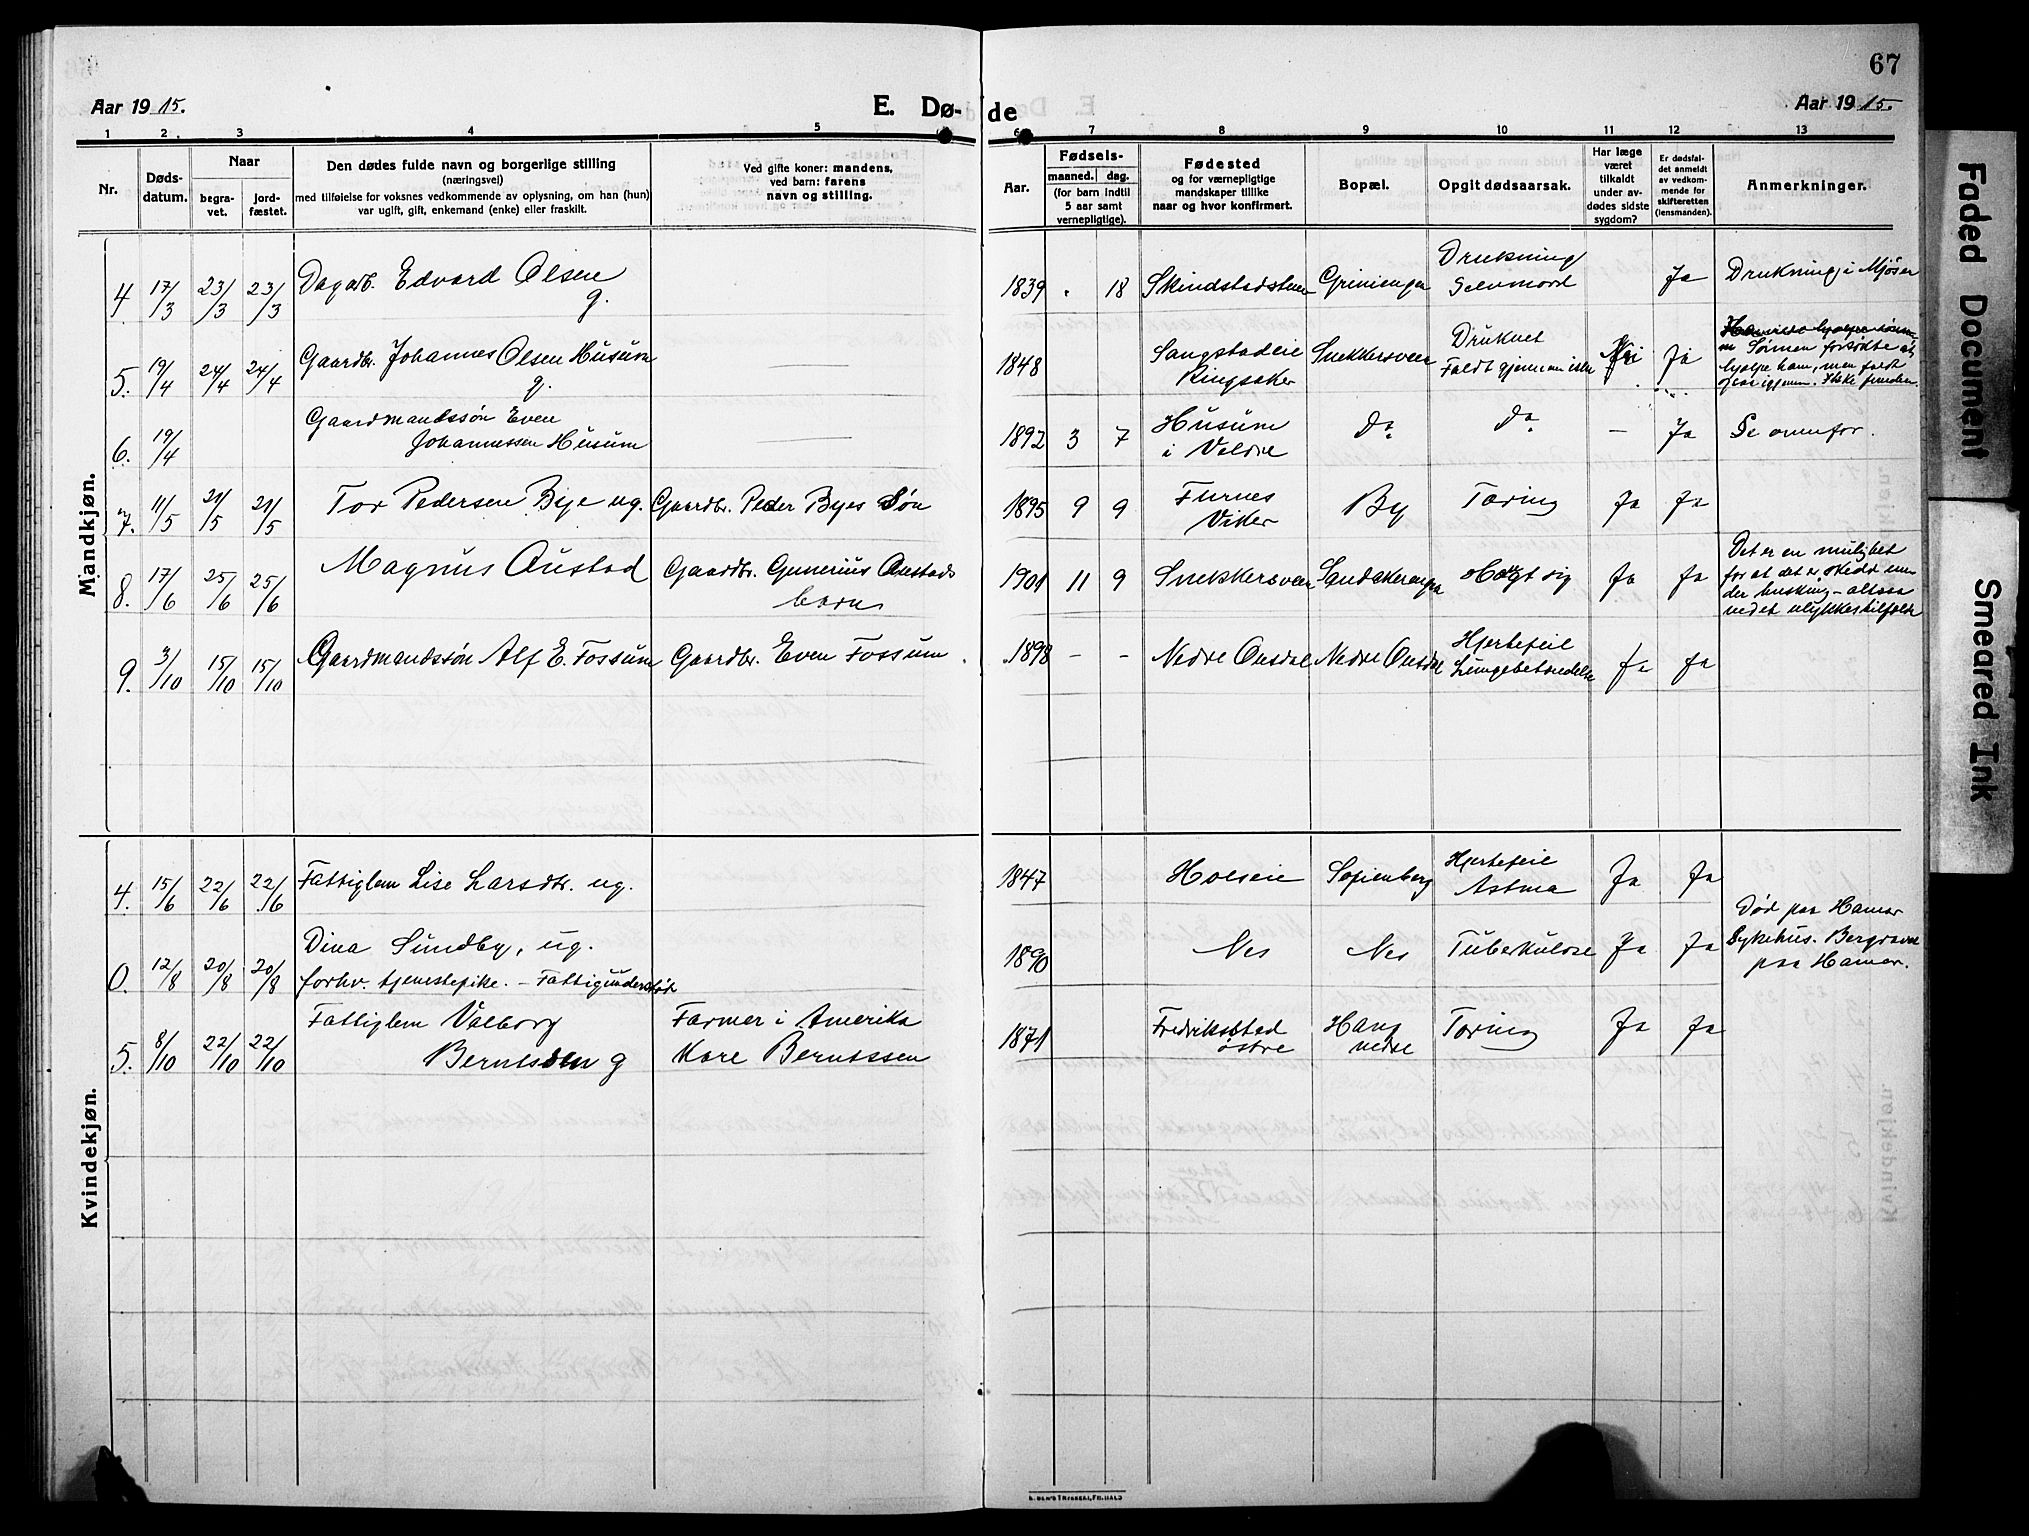 67
Aar 1915.
E. Dø-
de
Aar 1915.
1 2 3 4 5 6 7 8 9 10 11 12 13
Nr.
Døds-
datum.
Naar
begra-
vet.
jord-
fæstet.
Den dødes fulde navn og borgerlige stilling
(næringsvei)
med tilføielse for voksnes vedkommende av oplysning, om han (hun)
var ugift, gift, enkemand (enke) eller fraskilt.
Ved gifte koner: mandens,
ved barn: farens
navn og stilling.
Aar.
Fødsels-
maaned. dag.
(for barn indtil
5 aar samt
vernepligtige).
Fødested
og for værnepligtige
mandskaper tillike
naar og hvor konfirmert.
Bopæl.
Opgit dødsaarsak.
Har læge
været
tilkaldt
under av-
dødes sidste
sygdom?
Er dødsfal-
det anmeldt
av vedkom-
mende for
skifteretten
(lensmanden).
Anmerkninger.
Mandkjøn.
4 17/3 23/3 23/3 Dagarb. Edvard Olsen
g.
1839 18 Skindstadstuen Griniengen
Drukning
Selvmord
Ja
Drukning i Mjøsen
5. 19/4 24/4 24/4 Gaardbr. Johannes Olsen Husum
g.
1848
Sangstadeie
Ringsaker
Snekkersveen
Druknet
Faldt gjennem isen
Nei Ja
Sønnen forsøkte at
hjælpe ham, men faldt
ogsaa igjennem. Ikke funden.
6. 19/4
Gaardmandssøn Even
Johannessen Husum
1892 3 7
Husum
i Veldre
Do Do — Ja Se ovenfor.
7. 11/5 21/5 21/5 Tor Pedersen Bye ug. Gaardbr. Peder Byes Søn
1895 9 9
Furnes
Viker
By Tæring Ja Ja
8. 17/6 25/6 25/6 Magnus Austad
Gaardbr. Gunerius Austads
barn
1901 11 9 Snekkersveen Sandakerengen Hængt sig Ja Ja
Det er en mulighet
for at det er skedd un-
der husking - altsaa
ved et ulykkestilfælde
9. 3/10 15/10 15/10 Gaardmandssøn Alf E. Fossum Gaardbr. Even Fossum
1898 - - Nedre Ousdal Nedre Ousdal
Hjertefeil
Lungebetændelse
Ja Ja
Kvindekjøn.
4. 15/6 22/6 22/6 Fattiglem Lise Larsdtr. ug.
1847 Hoelseie Sofienberg
Hjertefeil
Astma
Ja Ja
0. 12/8 20/8 20/8
Dina Sundby, ug.
forhv. tjenestepike. - Fattigunderstøt
1890 Nes Nes Tuberkulose Ja Ja
Død paa Hamar
Sykehus. Begravet
paa Hamar.
5. 8/10 22/10 22/10
Fattiglem Valborg
Berntssen g
Farmer i Amerika
Kare Berntssen
1871
Fredrikstad
østre
Haug
nedre
Tæring Ja Ja
Faded Document
Smeared Ink